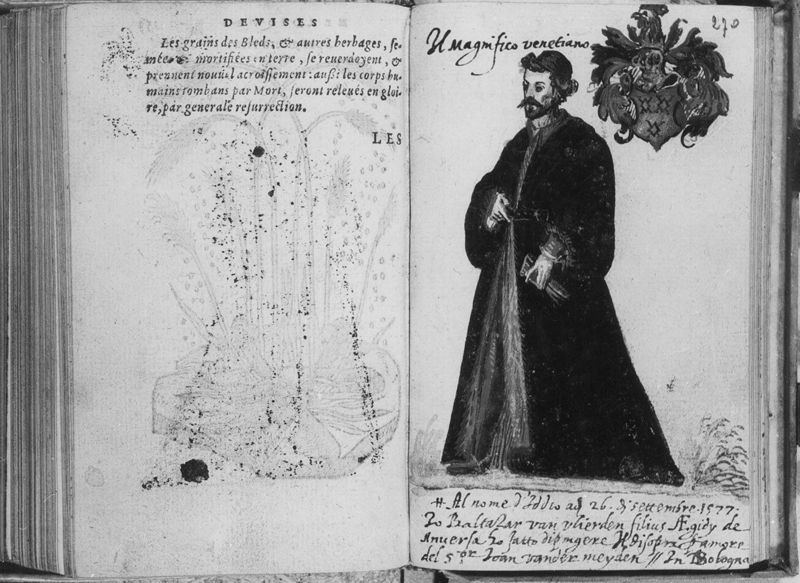 DEVISES
Les grains des Bleds, & autres herbages, se-
mées & mortifiées en terre, se reverdoyent, &
prennent nouvel acroissement: aussi les corps hu-
mains tombans par Mort, seront relevés en gloi-
re, par generale resurrection.
LES
270
Il Magnifico venetiano
Al nome d'Iddio ad 26. di settembre 1577.
Io Baltazar van vlierden filius Ægidij de
Anversa Io fatto dipingere Il disopra p amore
del Sor Joan vander meyden // In Bologna